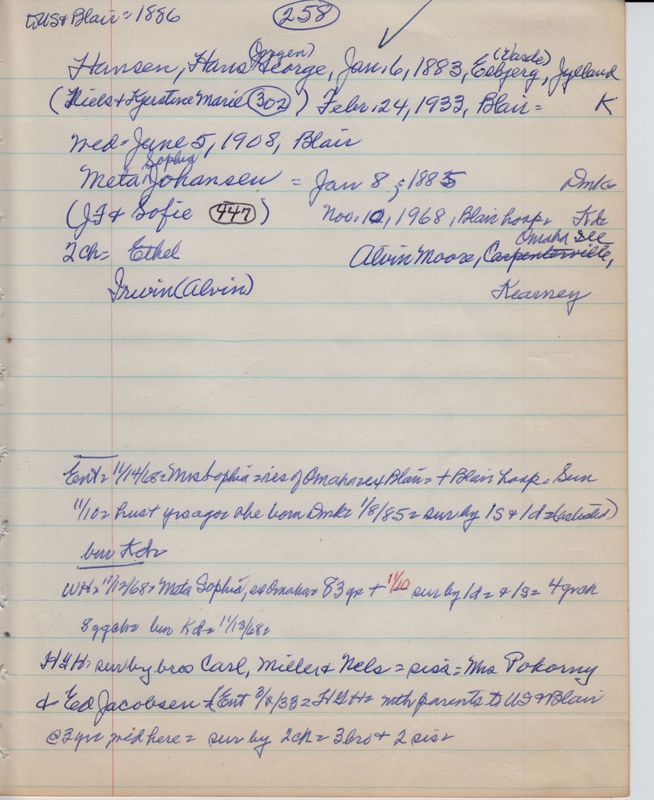 US & Blair = 1886
258
(Jorgen) (Varde)
Hansen, Hans George, Jan. 6, 1883, Esbjerg, Jylland
(Niels & Kjerstine Marie 302) Febr. 24, 1933, Blair = K
wed = June 5, 1908, Blair
Sophia
Meta Johansen = Jan 8, 1885 Dmk =
(J F & Sofie 447) Nov. 10, 1968, Blair hosp = Kd =
2 ch = Ethel Alvin Moore, Carpenterville, Omaha See
Irwin (Alvin) Kearney
Ent = 11/14/68 = Mrs Sophia = res of Omaha = ex Blair = + Blair hosp = Sun
11/10 = hus + yrs ago = she born Dmk = 1/8/85 = sur by 1 s & 1 d = (as listed)
bur Kd =
WH = 11/12/68 = Meta Sophia, ex Omaha = 83 yr + 11/10 sur by 1 d = & 1 s = 4 grch
8 ggch = bur Kd = 11/13/68 =
HGH = sur by bros Carl, Miller & Nels = sis = Mrs Pokorny
& Ed Jacobsen (Ent 3/2/33 = HGH = with parents to US & Blair
@ 3 yr = wed here = sur by 2 ch = 3 bro & 2 sis =